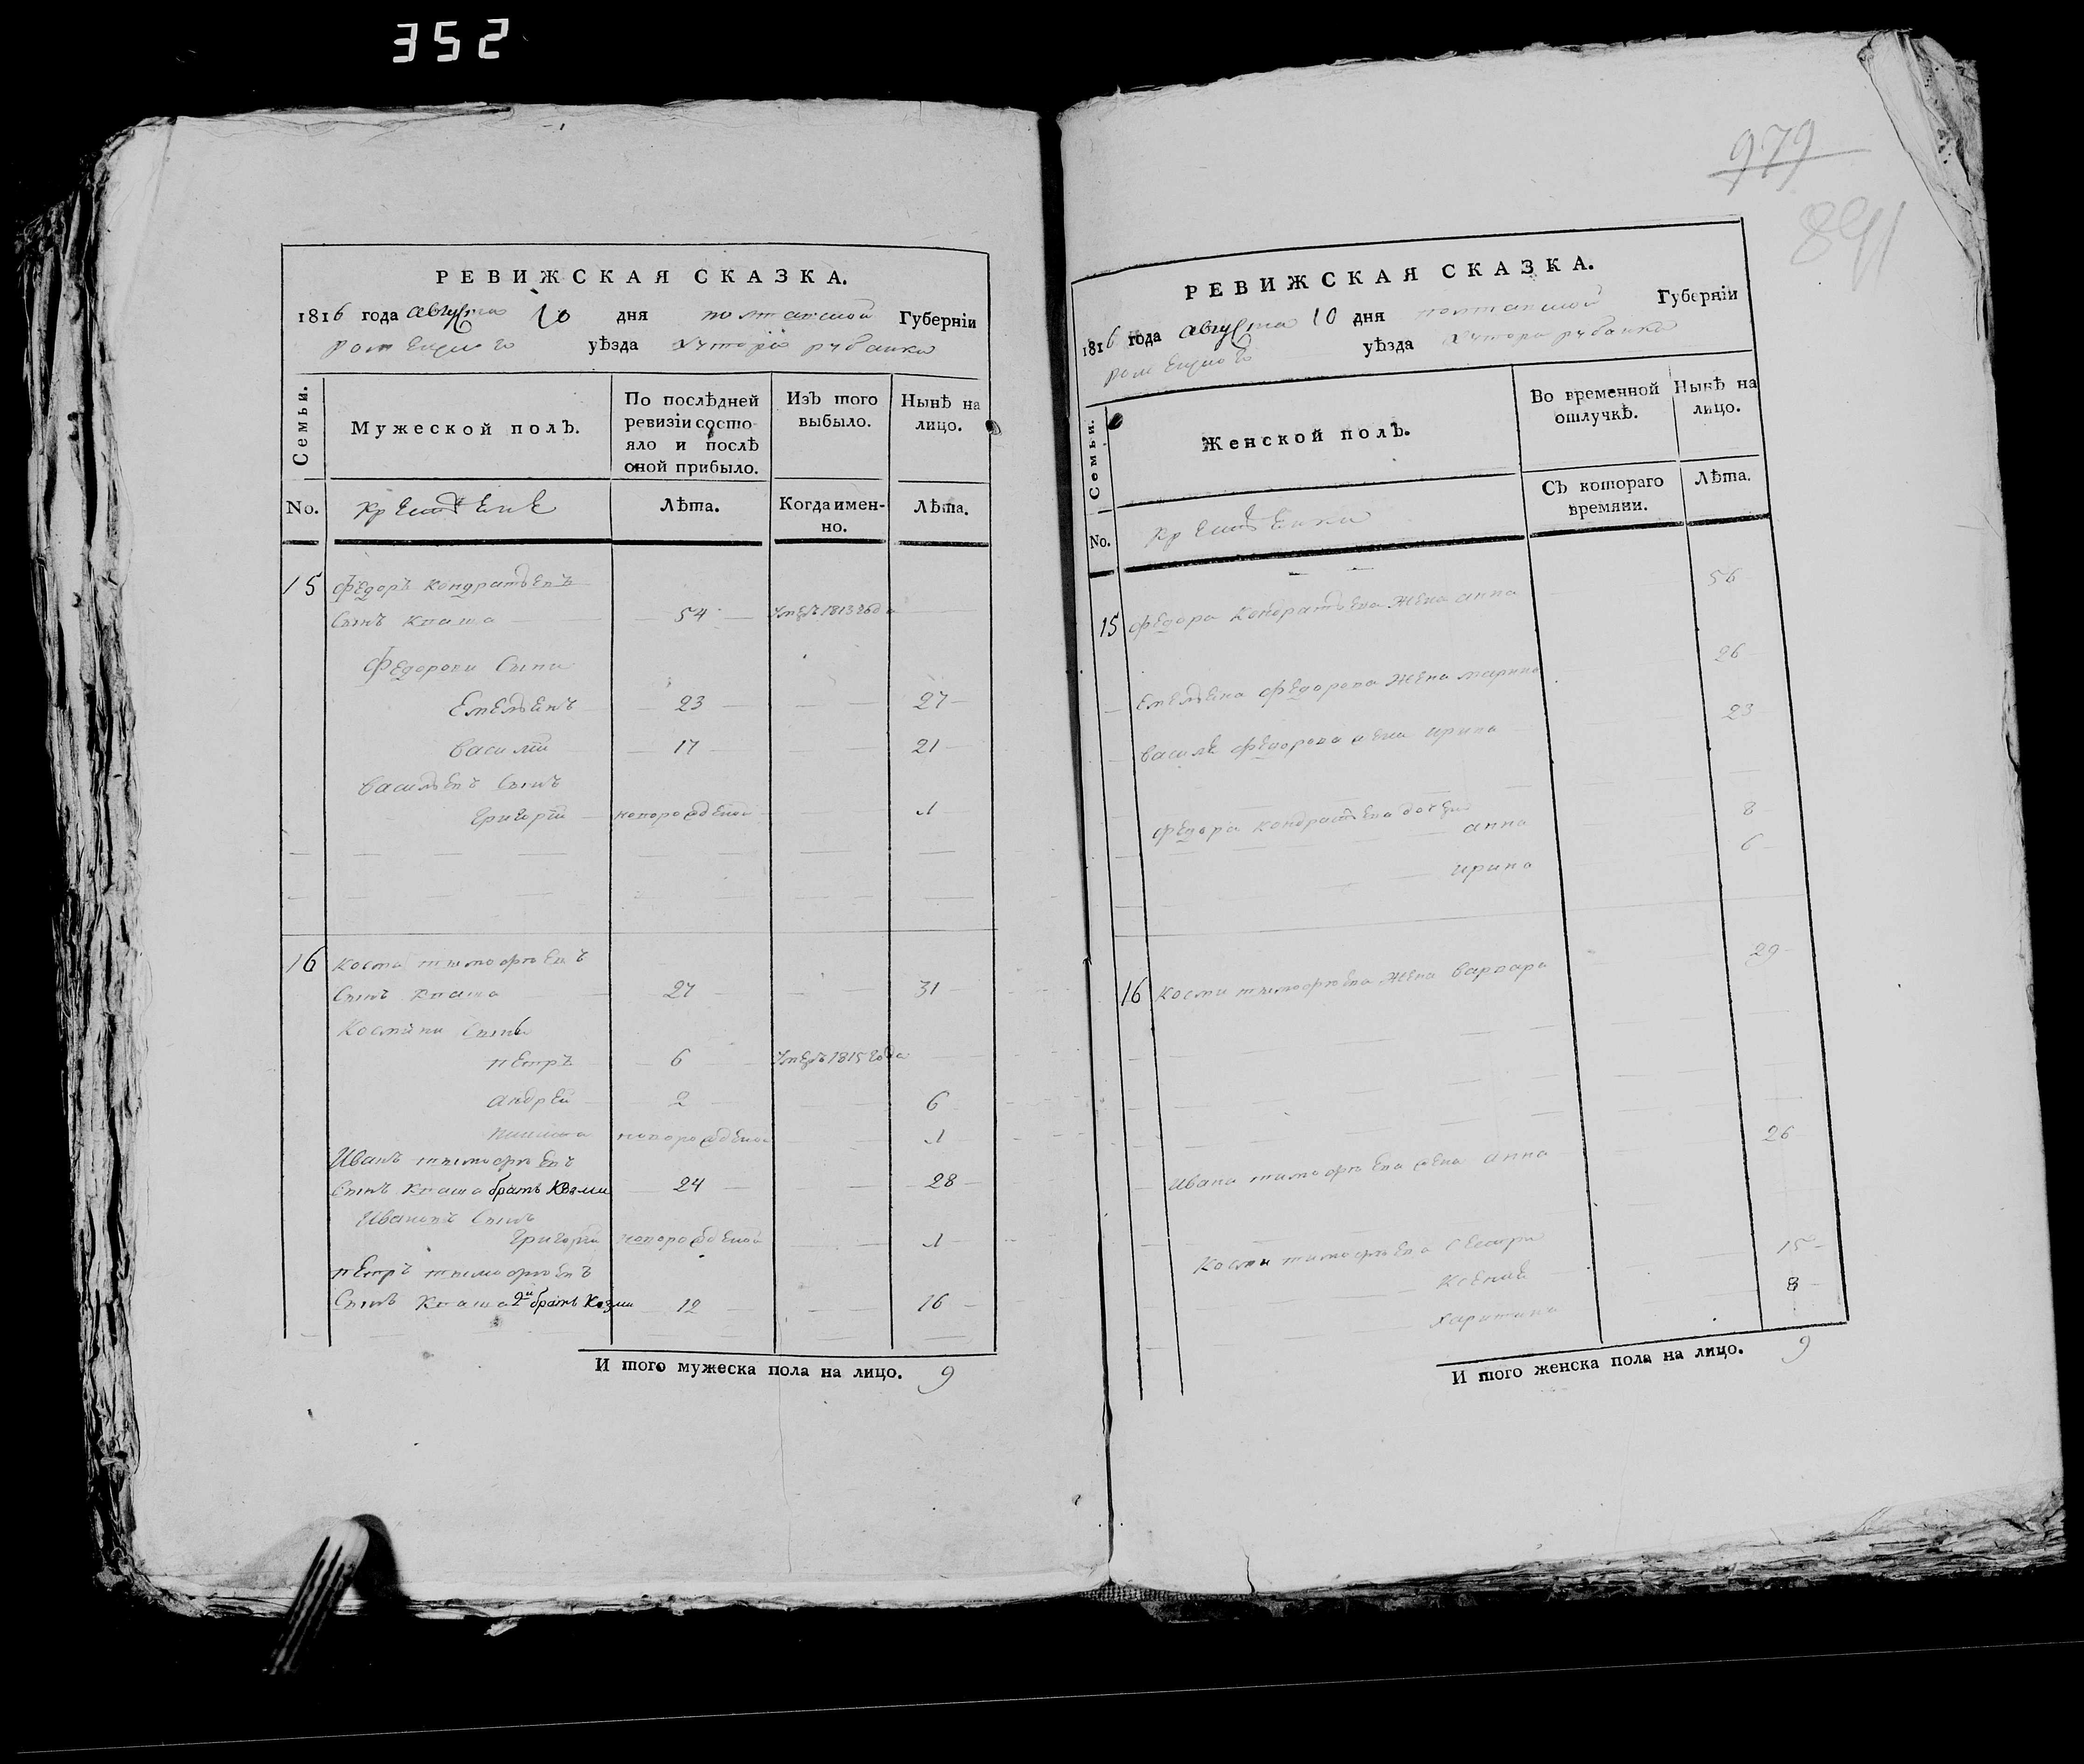 352
979
891
РЕВИЖСКАЯ СКАЗКА.
1816 года августа 10 дня полтавской Губерніи
роменцкого уѣзда хутора рубанки
Семьи.
Мужеской полЪ.
По послѣдней ревизіи состояло и послѣ оной прибыло.
ИзЪ того выбыло.
Нынѣ на лицо.
No.
крестьяне
Лѣта.
Когда именно.
Лѣта.
15 Федоръ кондратьевъ
сынъ кваша 54 умеръ 1813 года
Федорови сыни
Емельянъ 23 27
василій 17 21
васильевъ сынъ
григорій новорожденой 1
16 косма тимофѣевъ
сынъ кваша 27 31
космини сыны
петръ 6 умеръ 1815 года
андрей 2 6
новорожденой 1
Иванъ тимофѣевъ
сынъ кваша братъ Козми 24 28
Ивановъ сынъ
григорій новорожденой 1
петръ тимофѣевъ
сынъ кваша 2й братъ Козми 12 16
И того мужеска пола на лицо. 9
РЕВИЖСКАЯ СКАЗКА.
1816 года августа 10 дня полтавской Губерніи
роменцкого уѣзда хутора рубанки
Семьи.
Женской полЪ.
Во временной отлучкѣ.
Нынѣ на лицо.
No.
крестьянки
СЪ котораго времяни.
Лѣта.
15 федора кондратьева жена анна 56
Емельяна федорова жена марина 26
василя федорова жена ирина 23
федора кондратьева дочери
анна 8
ирина 6
16 косми тимофѣева жена варвара 29
Ивана тимофѣева жена анна 26
Косми тимофѣева сестри
Ксения 15
харитина 8
И того женска пола на лицо. 9